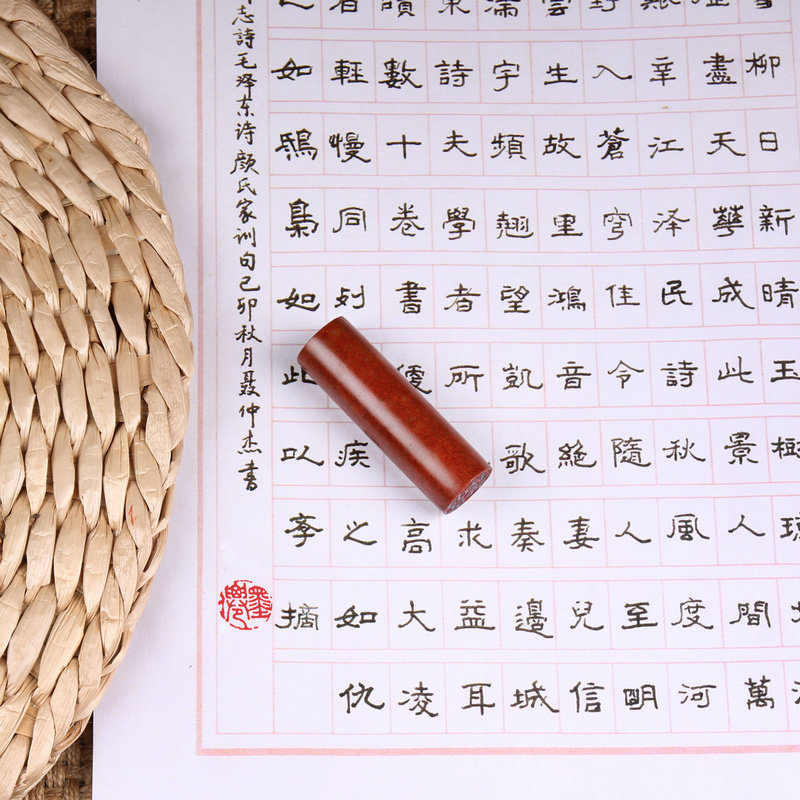 柳日新晴玉
盡天華成此景人間萬
艱辛江泽民詩秋風度河
野入蒼穹佳令隨人至明
雲生故里鴻音絕妻兒信
滿宇頻翹望凱歌奏邊城
東詩夫學者所求益耳
數十卷書高大凌
者輕慢同列疾之如仇
之如鴟梟如此以摘
志詩毛泽东诗颜氏家训句己卯秋月聂仲杰書